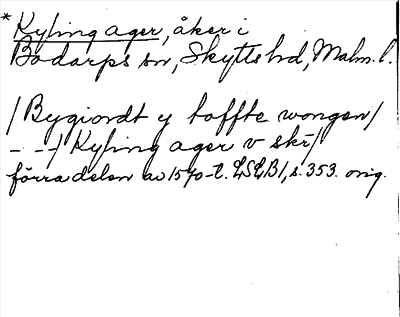 *Kyling ager, åker i
Bodarps sn, Skytts hd, Malm. l.
/Bygiordt y toffte wongen/
- - -/ Kyling ager v skr/
förra delen av 1570-t. LSLB1, s. 353. orig.